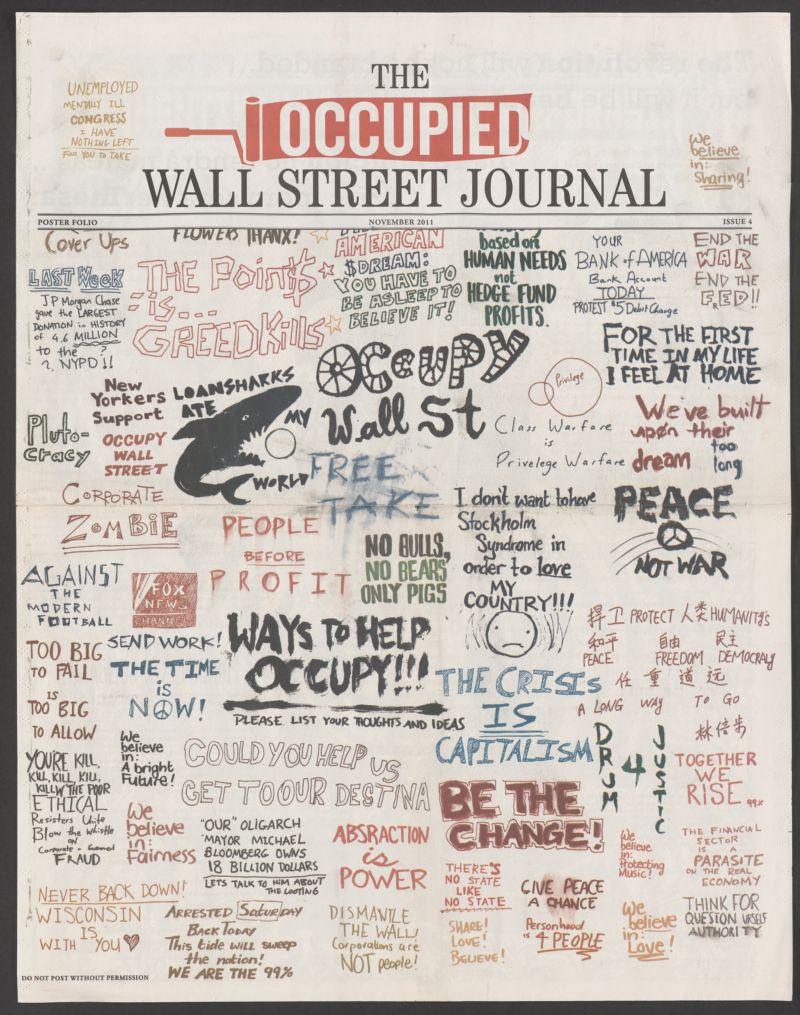 UNEMPLOYED
MENTALLY ILL
CONGRESS
I HAVE
NOTHING LEFT
FOR YOU TO TAKE
THE
OCCUPIED
WALL STREET JOURNAL
We
believe
in:
Sharing!
POSTER FOLIO
NOVEMBER 2011
ISSUE 4
Cover Ups
FLOWERS THANX!
AMERICAN
$DREAM:
YOU HAVE TO
BE ASLEEP TO
BELIEVE IT!
based on
HUMAN NEEDS
not
HEDGE FUND
PROFITS.
YOUR
BANK of AMERICA
Bank Account
TODAY
PROTEST $5 Debit Charge
END THE
WAR
END THE
FED!!
LAST Week
JP Morgan Chase
gave the LARGEST
DONATION in HISTORY
of 4.6 MILLION
to the ?
NYPD!!
THE Point$
is...
GREEDKills
OCCUPY
Wall St
FOR THE FIRST
TIME IN MY LIFE
I FEEL AT HOME
Privilege
New
Yorkers
Support
OCCUPY
WALL
STREET
LOANSHARKS
ATE
MY
WORLD
Pluto-
cracy
Class Warfare
is
Privelege Warfare
We've built
upon their
dream
too
long
FREE
TAKE
CORPORATE
ZOMBIE
PEOPLE
BEFORE
PROFIT
NO BULLS,
NO BEARS
ONLY PIGS
I don't want to have
Stockholm
Syndrome in
order to love
MY
COUNTRY!!!
PEACE
NOT WAR
AGAINST
THE
MODERN
FOOTBALL
FOX
NEWS
CHANNEL
捍卫 PROTECT 人类 HUMANITY's
和平 自由 民主
PEACE FREEDOM DEMOCRALY
任重道远
A LONG WAY TO GO
TOO BIG
TO FAIL
IS
TOO BIG
TO ALLOW
SEND WORK!
THE TIME
is
NOW!
WAYS TO HELP
OCCUPY!!!
PLEASE LIST YOUR THOUGHTS AND IDEAS
THE CRISIS
IS
CAPITALISM
DRUM
4
JUSTIC
TOGETHER
WE
RISE 99%
YOU'RE KILL,
KILL, KILL, KILL,
KILLW THE POOR
ETHICAL
Resisters Unite
Blow the Whistle
on
Corporate
FRAUD
We
believe
in:
A bright
Future!
COULD YOU HELP US
GET TO OUR DESTINA
We
believe
in:
Fairness
"OUR" OLIGARCH
MAYOR MICHAEL
BLOOMBERG OWNS
18 BILLION DOLLARS
LETS TALK TO HIM ABOUT
THE LOOTING
ABSRACTION
is
POWER
BE THE
CHANGE!
We
believe
in:
Protecting
Music!
THE FINANCIAL
SECTOR
IS A
PARASITE
ON THE REAL
ECONOMY
THERE'S
NO STATE
LIKE
NO STATE
GIVE PEACE
A CHANCE
NEVER BACK DOWN!
WISCONSIN
IS
WITH YOU
ARRESTED Saturday
Back Today
This tide will sweep
the nation!
WE ARE THE 99%
DISMANTLE
THE WALL!
Corporations are
NOT people!
SHARE!
LOVE!
BELIEVE!
Personhood
is 4 PEOPLE
We
believe
in:
Love!
THINK FOR
QUESTION
AUTHORITY
DO NOT POST WITHOUT PERMISSION